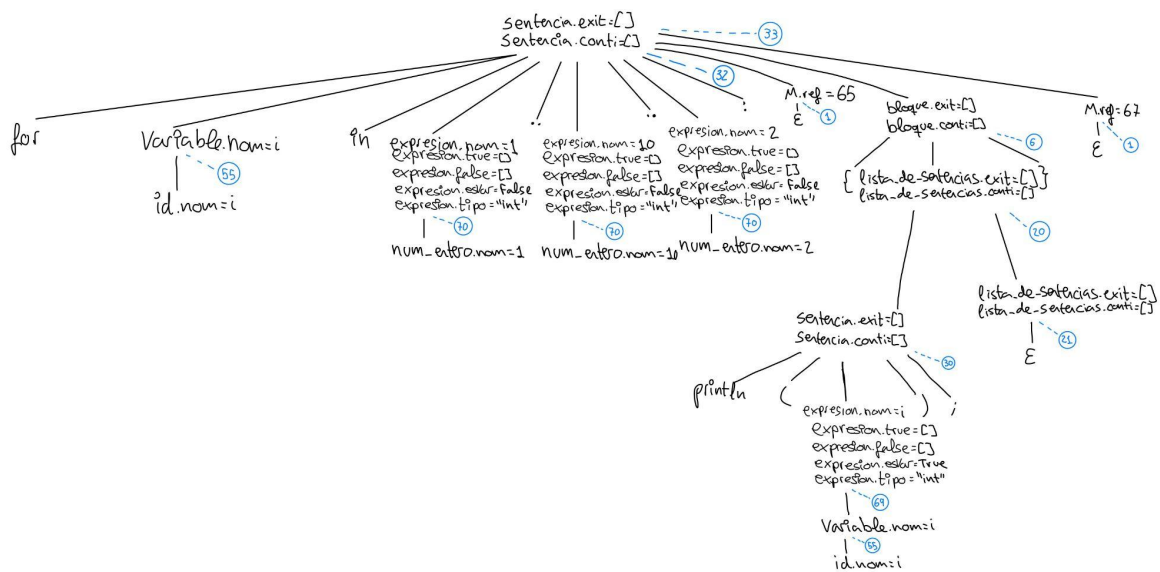 sentencia.exit=[]
sentencia.conti=[]
33
32
for
Variable.nom=i
55
id.nom=i
in
expresion.nom=1
expresion.true=[]
expresion.false=[]
expresion.esVar=False
expresion.tipo="int"
70
num_entero.nom=1
..
expresion.nom=10
expresion.true=[]
expresion.false=[]
expresion.esVar=False
expresion.tipo="int"
70
num_entero.nom=10
..
expresion.nom=2
expresion.true=[]
expresion.false=[]
expresion.esVar=False
expresion.tipo="int"
70
num_entero.nom=2
:
M.ref=65
ε
1
bloque.exit=[]
bloque.conti=[]
6
{ lista_de_sentencias.exit=[] }
lista_de_sentencias.conti=[]
20
M.ref=67
ε
1
sentencia.exit=[]
sentencia.conti=[]
30
lista_de_sentencias.exit=[]
lista_de_sentencias.conti=[]
21
ε
println
(
expresion.nom=i
)
;
expresion.true=[]
expresion.false=[]
expresion.esVar=True
expresion.tipo="int"
69
Variable.nom=i
55
id.nom=i